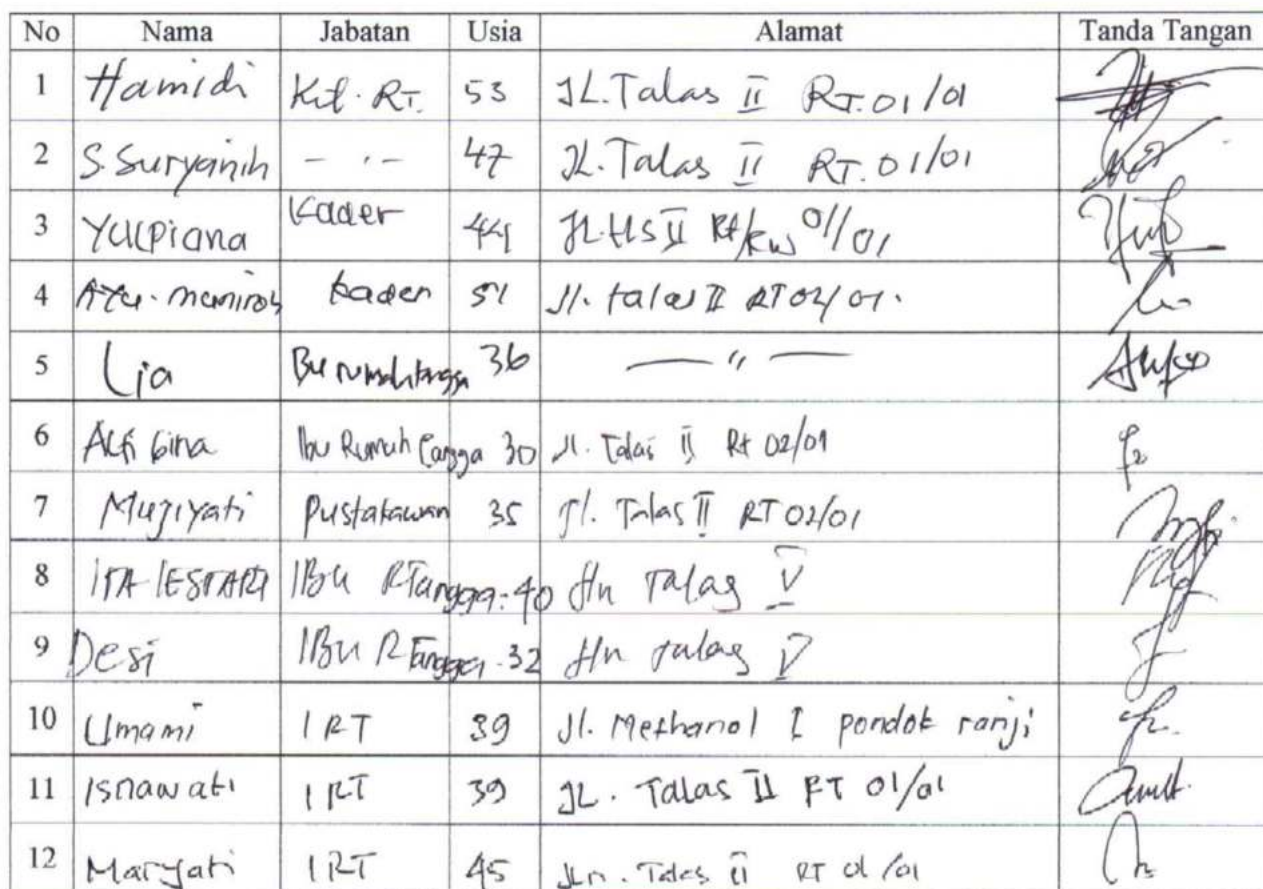 No Nama Jabatan Usia Alamat Tanda Tangan
1 Hamidi Ket. RT. 53 JL. Talas II RT. 01/01
2 S. Suryanih - ,, - 47 JL. Talas II RT. 01/01
3 Yulpiana Kader 44 JL. tls II Rt/Rw 01/01
4 kader 51 Jl. talas II RT 02/01.
5 Lia 36 — " —
6 Ibu Rumah Tangga 30 Jl. Talas II Rt 02/01
7 Mujiyati Pustakawan 35 Jl. Talas II RT 02/01
8 ITA LESTARI IBU RTangga. 40 Jln Talas V
9 Desi IBU R Tangga. 32 Jln talas V
10 Umami IRT 39 Jl. Methanol I pondok ranji
11 Isnawati IRT 39 JL. Talas II RT 01/01
12 Maryati IRT 45 Jln. Talas II RT 01/01